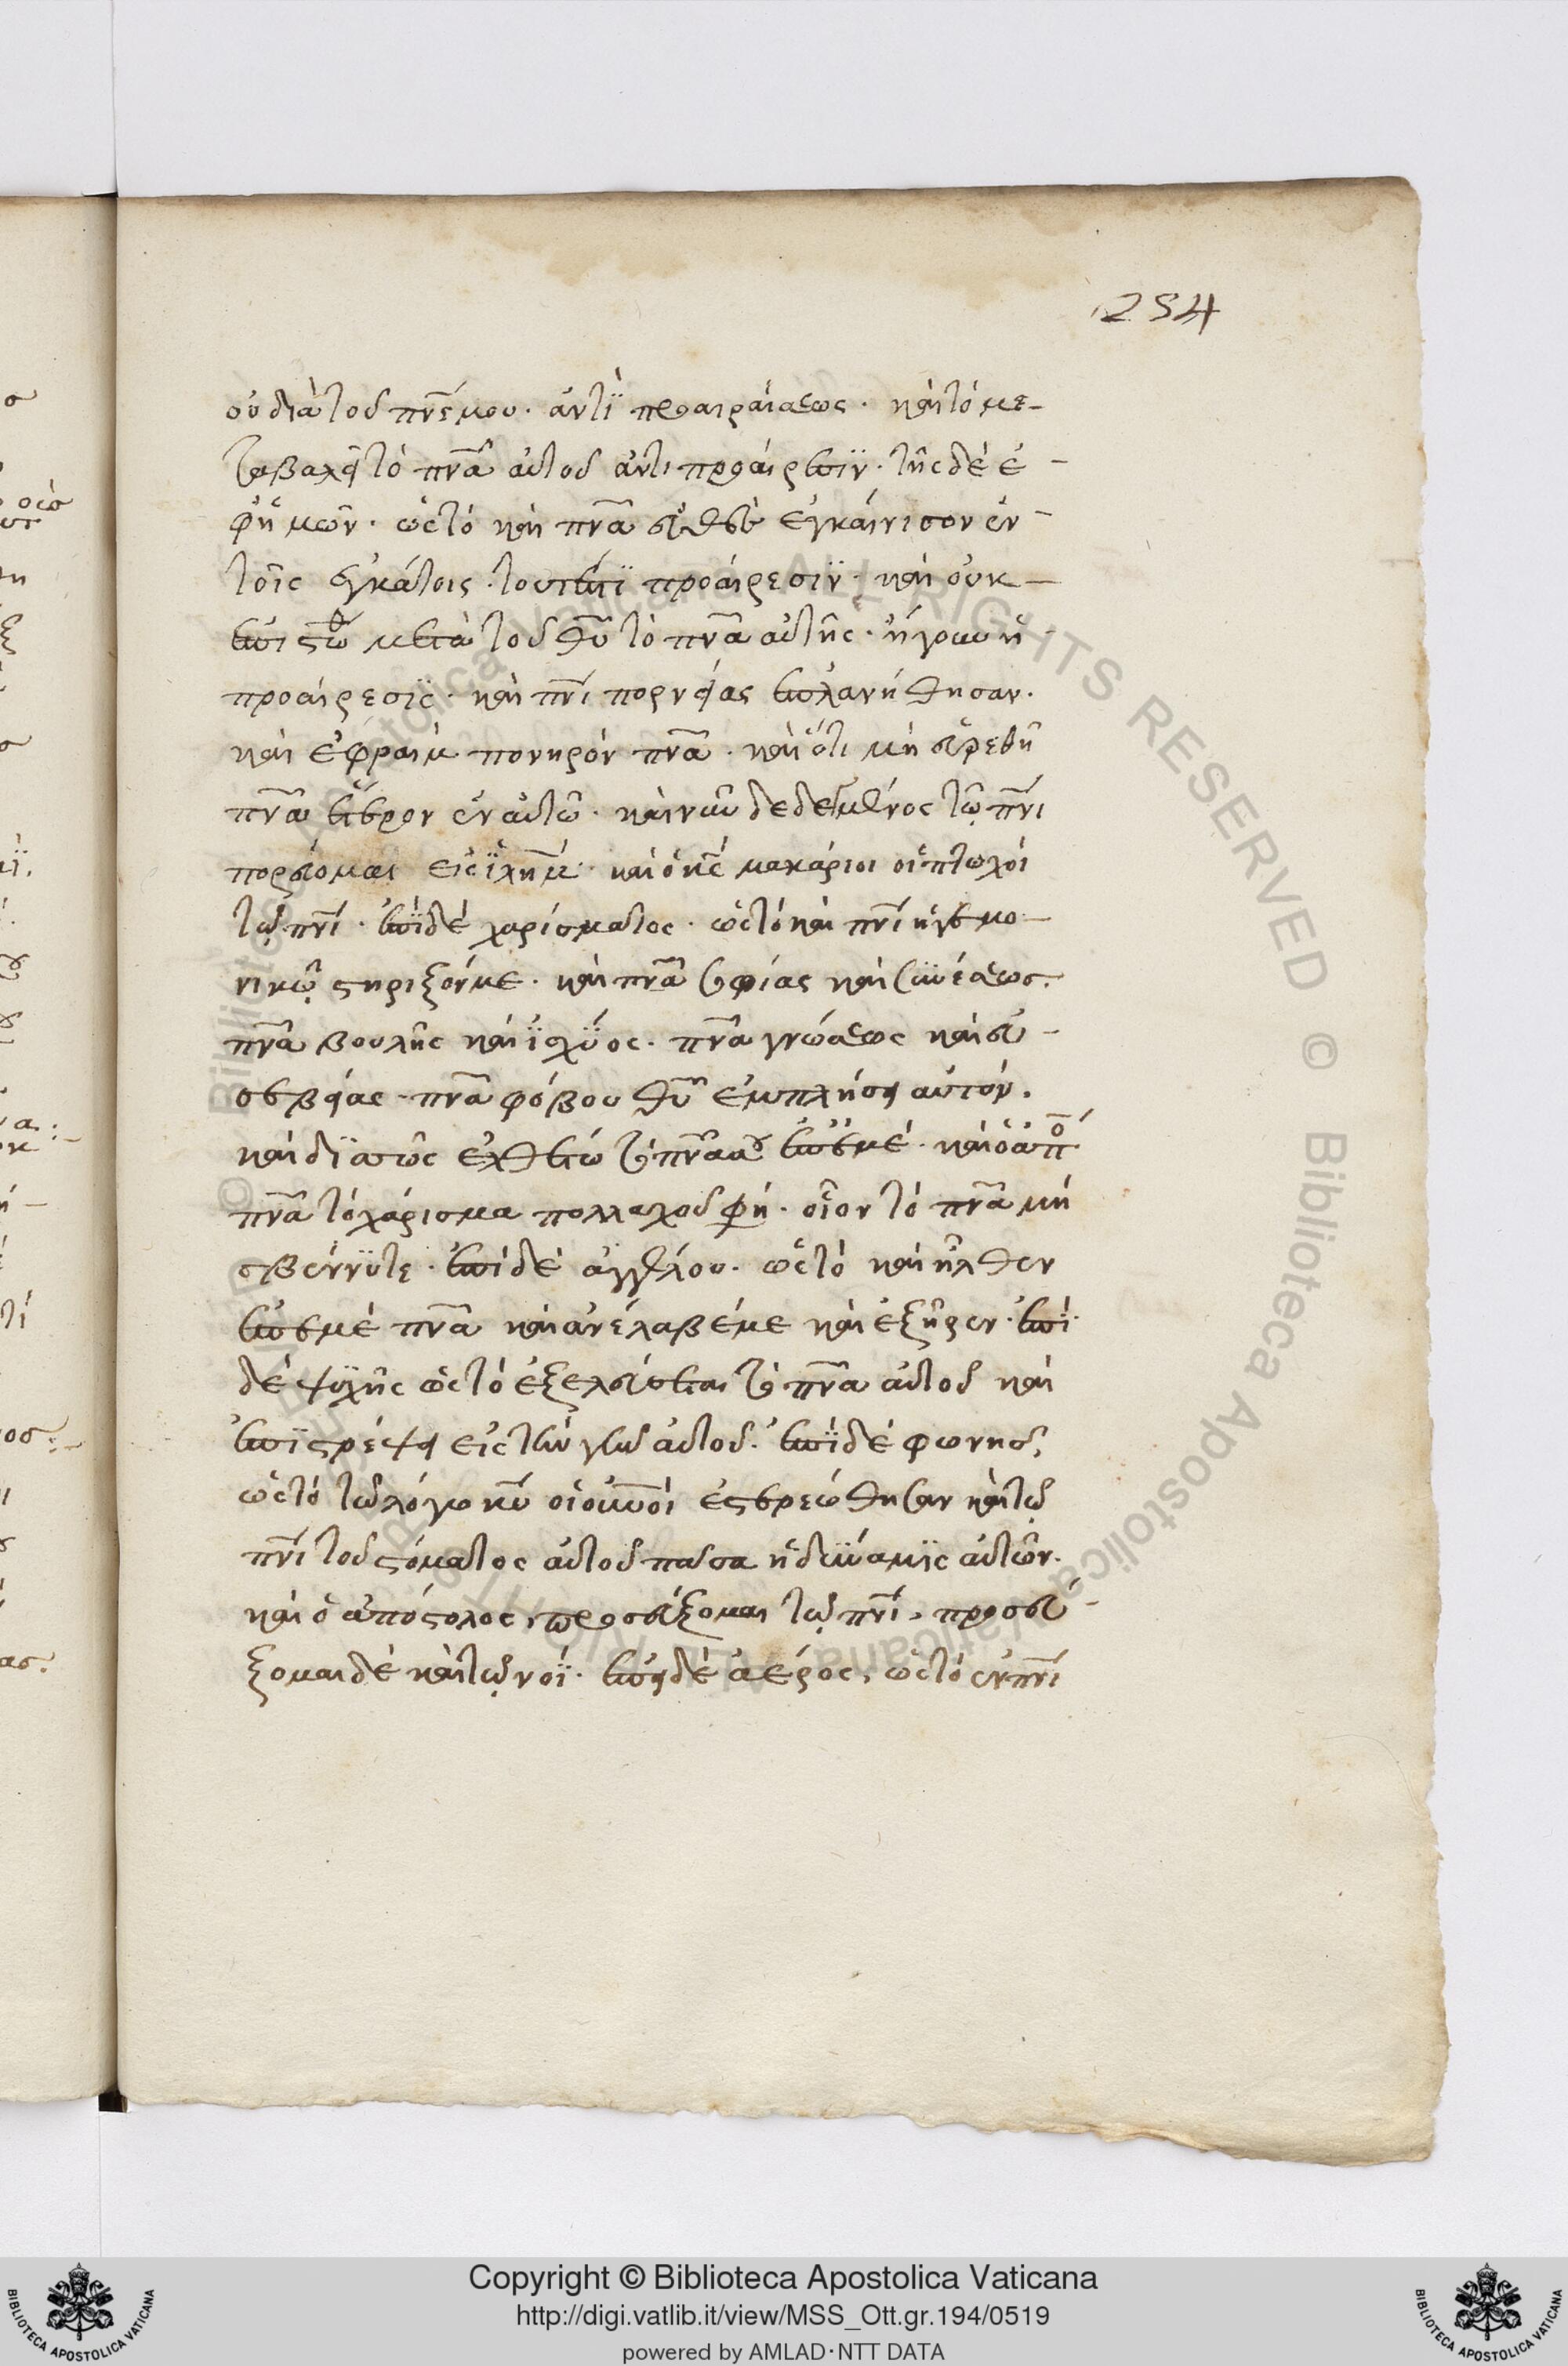 254
οὐ διὰ τοῦ πν̅ς μου· ἀντὶ προαιρέσεως· καὶ τὸ με-
ταβαλεῖ τὸ πν̅α αὐτοῦ ἀντὶ προαίρεσιν· τῆς δὲ ἐ-
φ' ἡμῶν· ὡς τὸ καὶ πν̅α εὐθὲς ἐγκαίνισον ἐν-
τοῖς ἐγκάτοις· τουτέστι προαίρεσιν· καὶ οὐκ-
ἐπιστώθ μετὰ τοῦ θ̅υ τὸ πν̅α αὐτῆς· ἤγουν ἡ
προαίρεσις· καὶ πν̅ι πορνείας ἐπλανήθησαν.
καὶ ἐφραὶμ πονηρὸν πν̅α· καὶ ὅτι μὴ εὑρεθῆ
πν̅α ἕτερον ἐν αὐτῶ· καὶ νῦν δεδεμένος τῶ πν̅ι
πορεύομαι εἰς ἱλη̅μ· καὶ ὁ κ̅ς μακάριοι οἱ πτωχοὶ
τῷ πν̅ι· ἐπὶ δὲ χαρίσματος· ὡς τὸ καὶ πν̅ι ἡγεμο-
νικῷ στήριξόν με· καὶ πν̅α σοφίας καὶ συνέσεως.
πν̅α βουλῆς καὶ ἰσχύος· πν̅α γνώσεως καὶ εὐ-
σεβείας· πν̅α φόβου θ̅υ ἐμπλήσει αὐτόν.
καὶ διαπῶς ἐχθετω τὸ πν̅α ἐπ' ἐμέ· καὶ ὁ απο̅
πν̅α τὸ χάρισμα πολλαχοῦ φη· οἷον τὸ πν̅α μὴ
σβέννυτε· ἐπὶ δὲ ἀγγέλου· ὡς τὸ καὶ ἦλθεν
ἐπ' ἐμὲ πν̅α καὶ ἀνέλαβέ με καὶ ἐξῆρεν· ἐπὶ
δὲ ψυχῆς ὡς τὸ ἐξελεύσεται τὸ πν̅α αὐτοῦ καὶ
ἐπιστρέψει εἰς τὴν γῆν αὐτοῦ· ἐπὶ δὲ φωνησ,
ὡς τὸ τῶ λόγω κ̅υ οἱ οὐν̅οὶ ἐστερεώθησαν καὶ τῷ
πν̅ι τοῦ στόματος αὐτοῦ πᾶσα ἡ δύναμις αὐτῶν.
καὶ ὁ ἀπόστολος, προσεύξομαι τῷ πν̅ι, προσεύ-
ξομαι δὲ καὶ τῷ νοΐ· ἐπὶ δὲ ἀέρος, ὡς τὸ ἐν πν̅ι
Copyright © Biblioteca Apostolica Vaticana
http://digi.vatlib.it/view/MSS_Ott.gr.194/0519
powered by AMLAD·NTT DATA